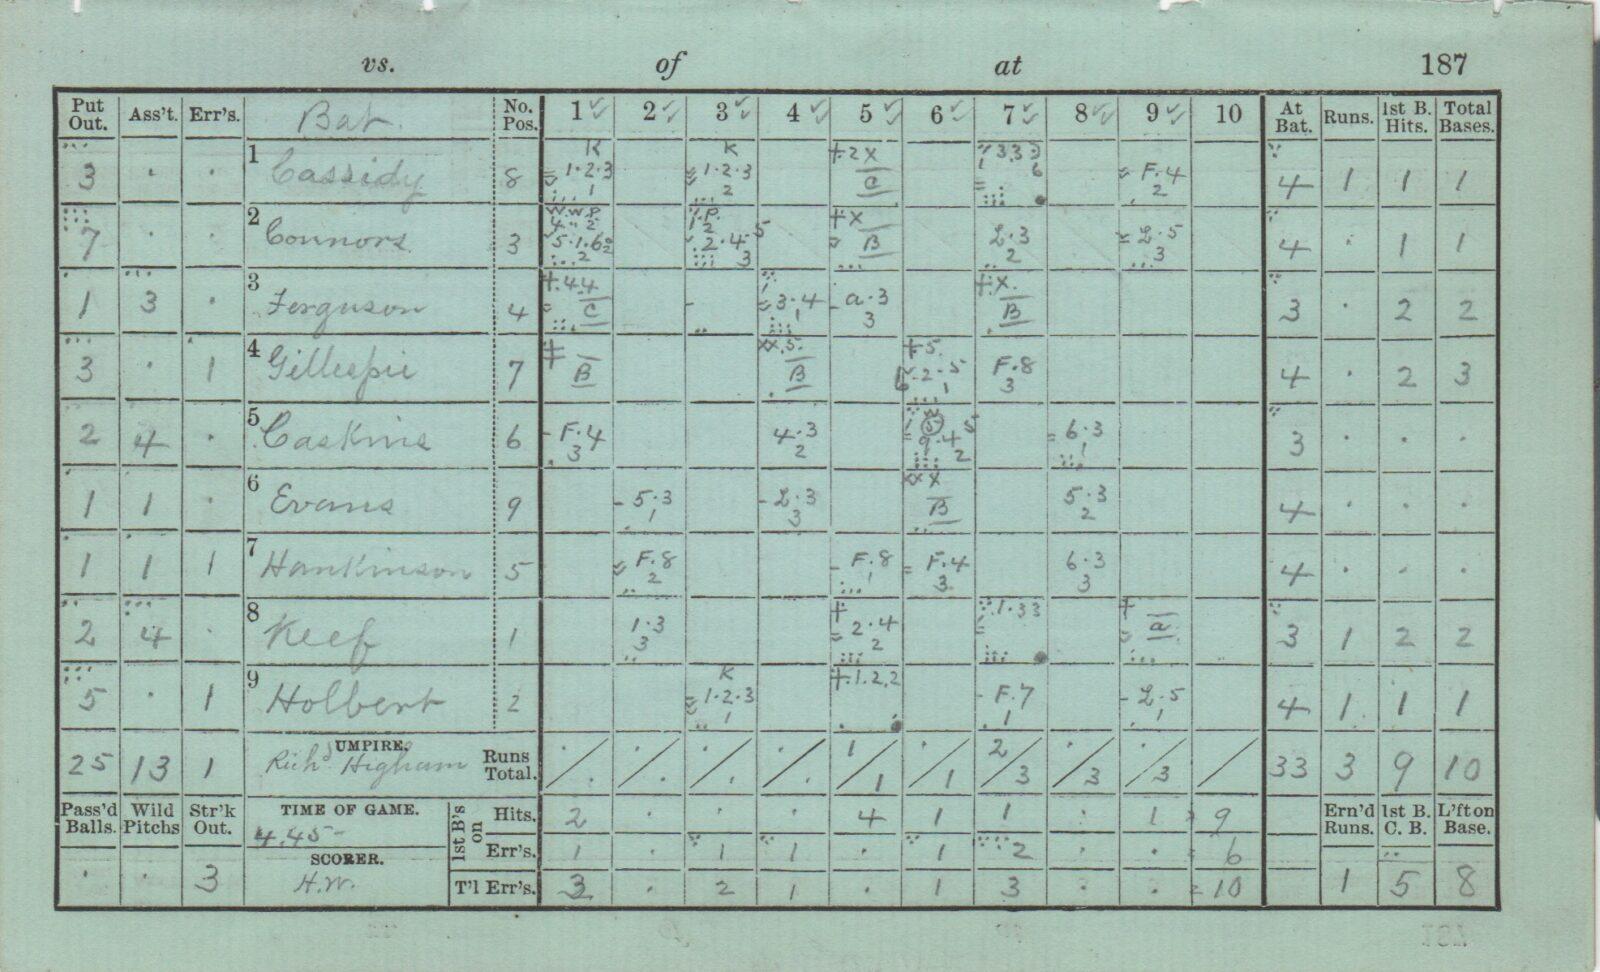 vs. of at 187
Put Out. Ass't. Err's. Bat. No. Pos. 1 2 3 4 5 6 7 8 9 10 At Bat. Runs. 1st B. Hits. Total Bases.
3 · · 1 Cassidy 8 K 1·2·3 1 K 1·2·3 2 +2X C 3 3 6 F.4 2 4 1 1 1
7 · · 2 Connors 3 W.W.P. 4 2 5·1·6 2 P. 2 2·4·5 3 +X B L·3 2 L·5 3 4 · 1 1
1 3 · 3 Ferguson 4 +.44 C 3·4 1 a·3 3 +X. B 3 · 2 2
3 · 1 4 Gillespie 7 B XX.5. B +5. 2·5 1 F.8 3 4 · 2 3
2 4 · 5 Caskins 6 F.4 3 4·3 2 W 5 9·4 5 2 6·3 1 3 · · ·
1 1 · 6 Evans 9 5·3 1 L·3 3 XX X B 5·3 2 4 · · ·
1 1 1 7 Hankinson 5 F.8 2 F.8 1 F.4 3 6·3 3 4 · · ·
2 4 · 8 Keef 1 1·3 3 + 2·4 2 1·33 + a 3 1 2 2
5 · 1 9 Holbert 2 K 1·2·3 1 +.1.2.2 F.7 1 L·5 1 4 1 1 1
25 13 1 UMPIRE. Rich^d Higham Runs Total. ·/. ·/. ·/. ·/. 1/1 ·/1 2/3 ·/3 ·/3 / 33 3 9 10
Pass'd Balls. Wild Pitchs Str'k Out. TIME OF GAME. 4.45- 1st B's on Hits. 2 · · · 4 1 1 · 1 9 Ern'd Runs. 1st B. C. B. L'ft on Base.
Err's. 1 · 1 1 · 1 2 · · = 6
· · 3 SCORER. H.W. T'l Err's. 3 · 2 1 · 1 3 · · = 10 1 5 8